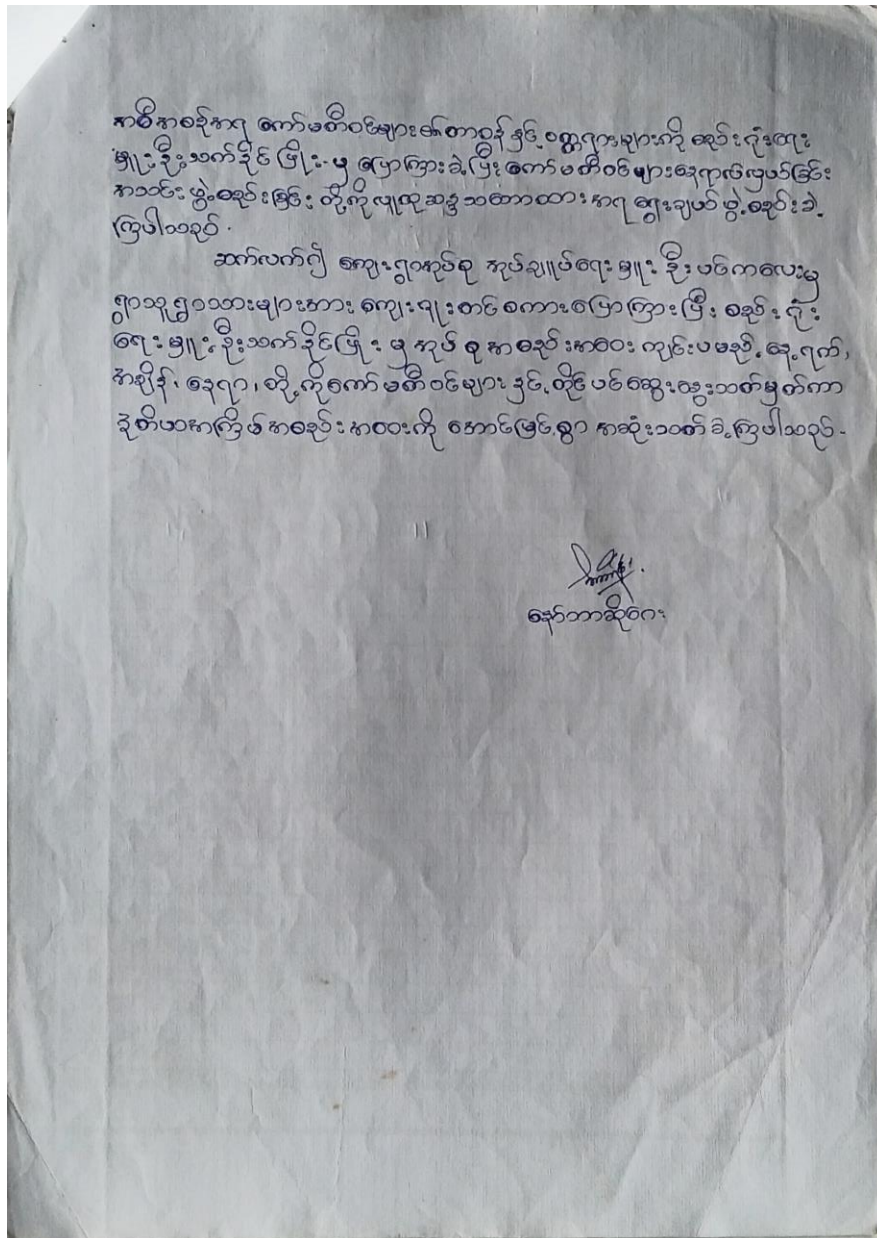 အစီအစဉ်အရ ကော်မတီဝင်များ၏တာဝန်နှင့် ဝတ္တရားများကို စည်းရုံးရေး
မှူးဦးသက်နိုင်ဖြိုးမှ ပြောကြားခဲ့ပြီး ကော်မတီဝင်များနေရာလဲလှယ်ခြင်း
အသင်းဖွဲ့စည်းခြင်း တို့ကိုလူထုဆန္ဒသဘောထားအရ ရွေးချယ်ဖွဲ့စည်းခဲ့
ကြပါသည်။
ဆက်လက်၍ ကျေးရွာအုပ်စု အုပ်ချုပ်ရေးမှူး ဦးပင်ကလေးမှ
ရွာသူရွာသားများအား ကျေးဇူးတင်စကားပြောကြားပြီး စည်းရုံး
ရေးမှူးဦးသက်နိုင်ဖြိုးမှ အုပ်စုအစည်းအဝေးကျင်းပမည့် နေ့ရက်၊
အချိန်၊ နေရာ၊ တို့ကိုကော်မတီဝင်များနှင့် တိုင်ပင်ဆွေးနွေးသတ်မှတ်ကာ
ဒုတိယအကြိမ်အစည်းအဝေးကို အောင်မြင်စွာ အဆုံးသတ်ခဲ့ကြပါသည်။
နော်ဘာဆိုဂေး